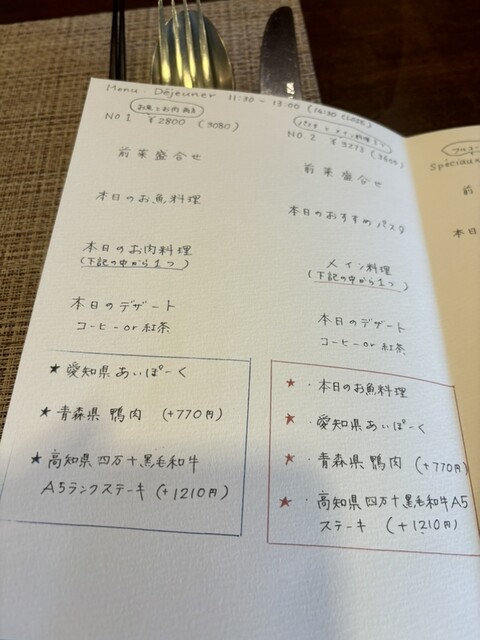 Menu. Déjeuner 11:30 ~ 13:00 (14:30 CLOSE)
お魚とお肉両方
No.1 ¥2800 (3080)
前菜盛合せ
本日のお魚料理
本日のお肉料理
(下記の中から1つ)
本日のデザート
コーヒー or 紅茶
★ 愛知県あいぽーく
★ 青森県 鴨肉 (+770円)
★ 高知県 四万十黒毛和牛
A5ランクステーキ (+1210円)
パスタとメイン料理
No.2 ¥3273 (3600)
前菜盛合せ
本日のおすすめパスタ
メイン料理
(下記の中から1つ)
本日のデザート
コーヒー or 紅茶
★ ・本日のお魚料理
★ ・愛知県あいぽーく
★ ・青森県 鴨肉 (+770円)
★ ・高知県 四万十黒毛和牛A5
ステーキ (+1210円)
Spéciaux
前
本日